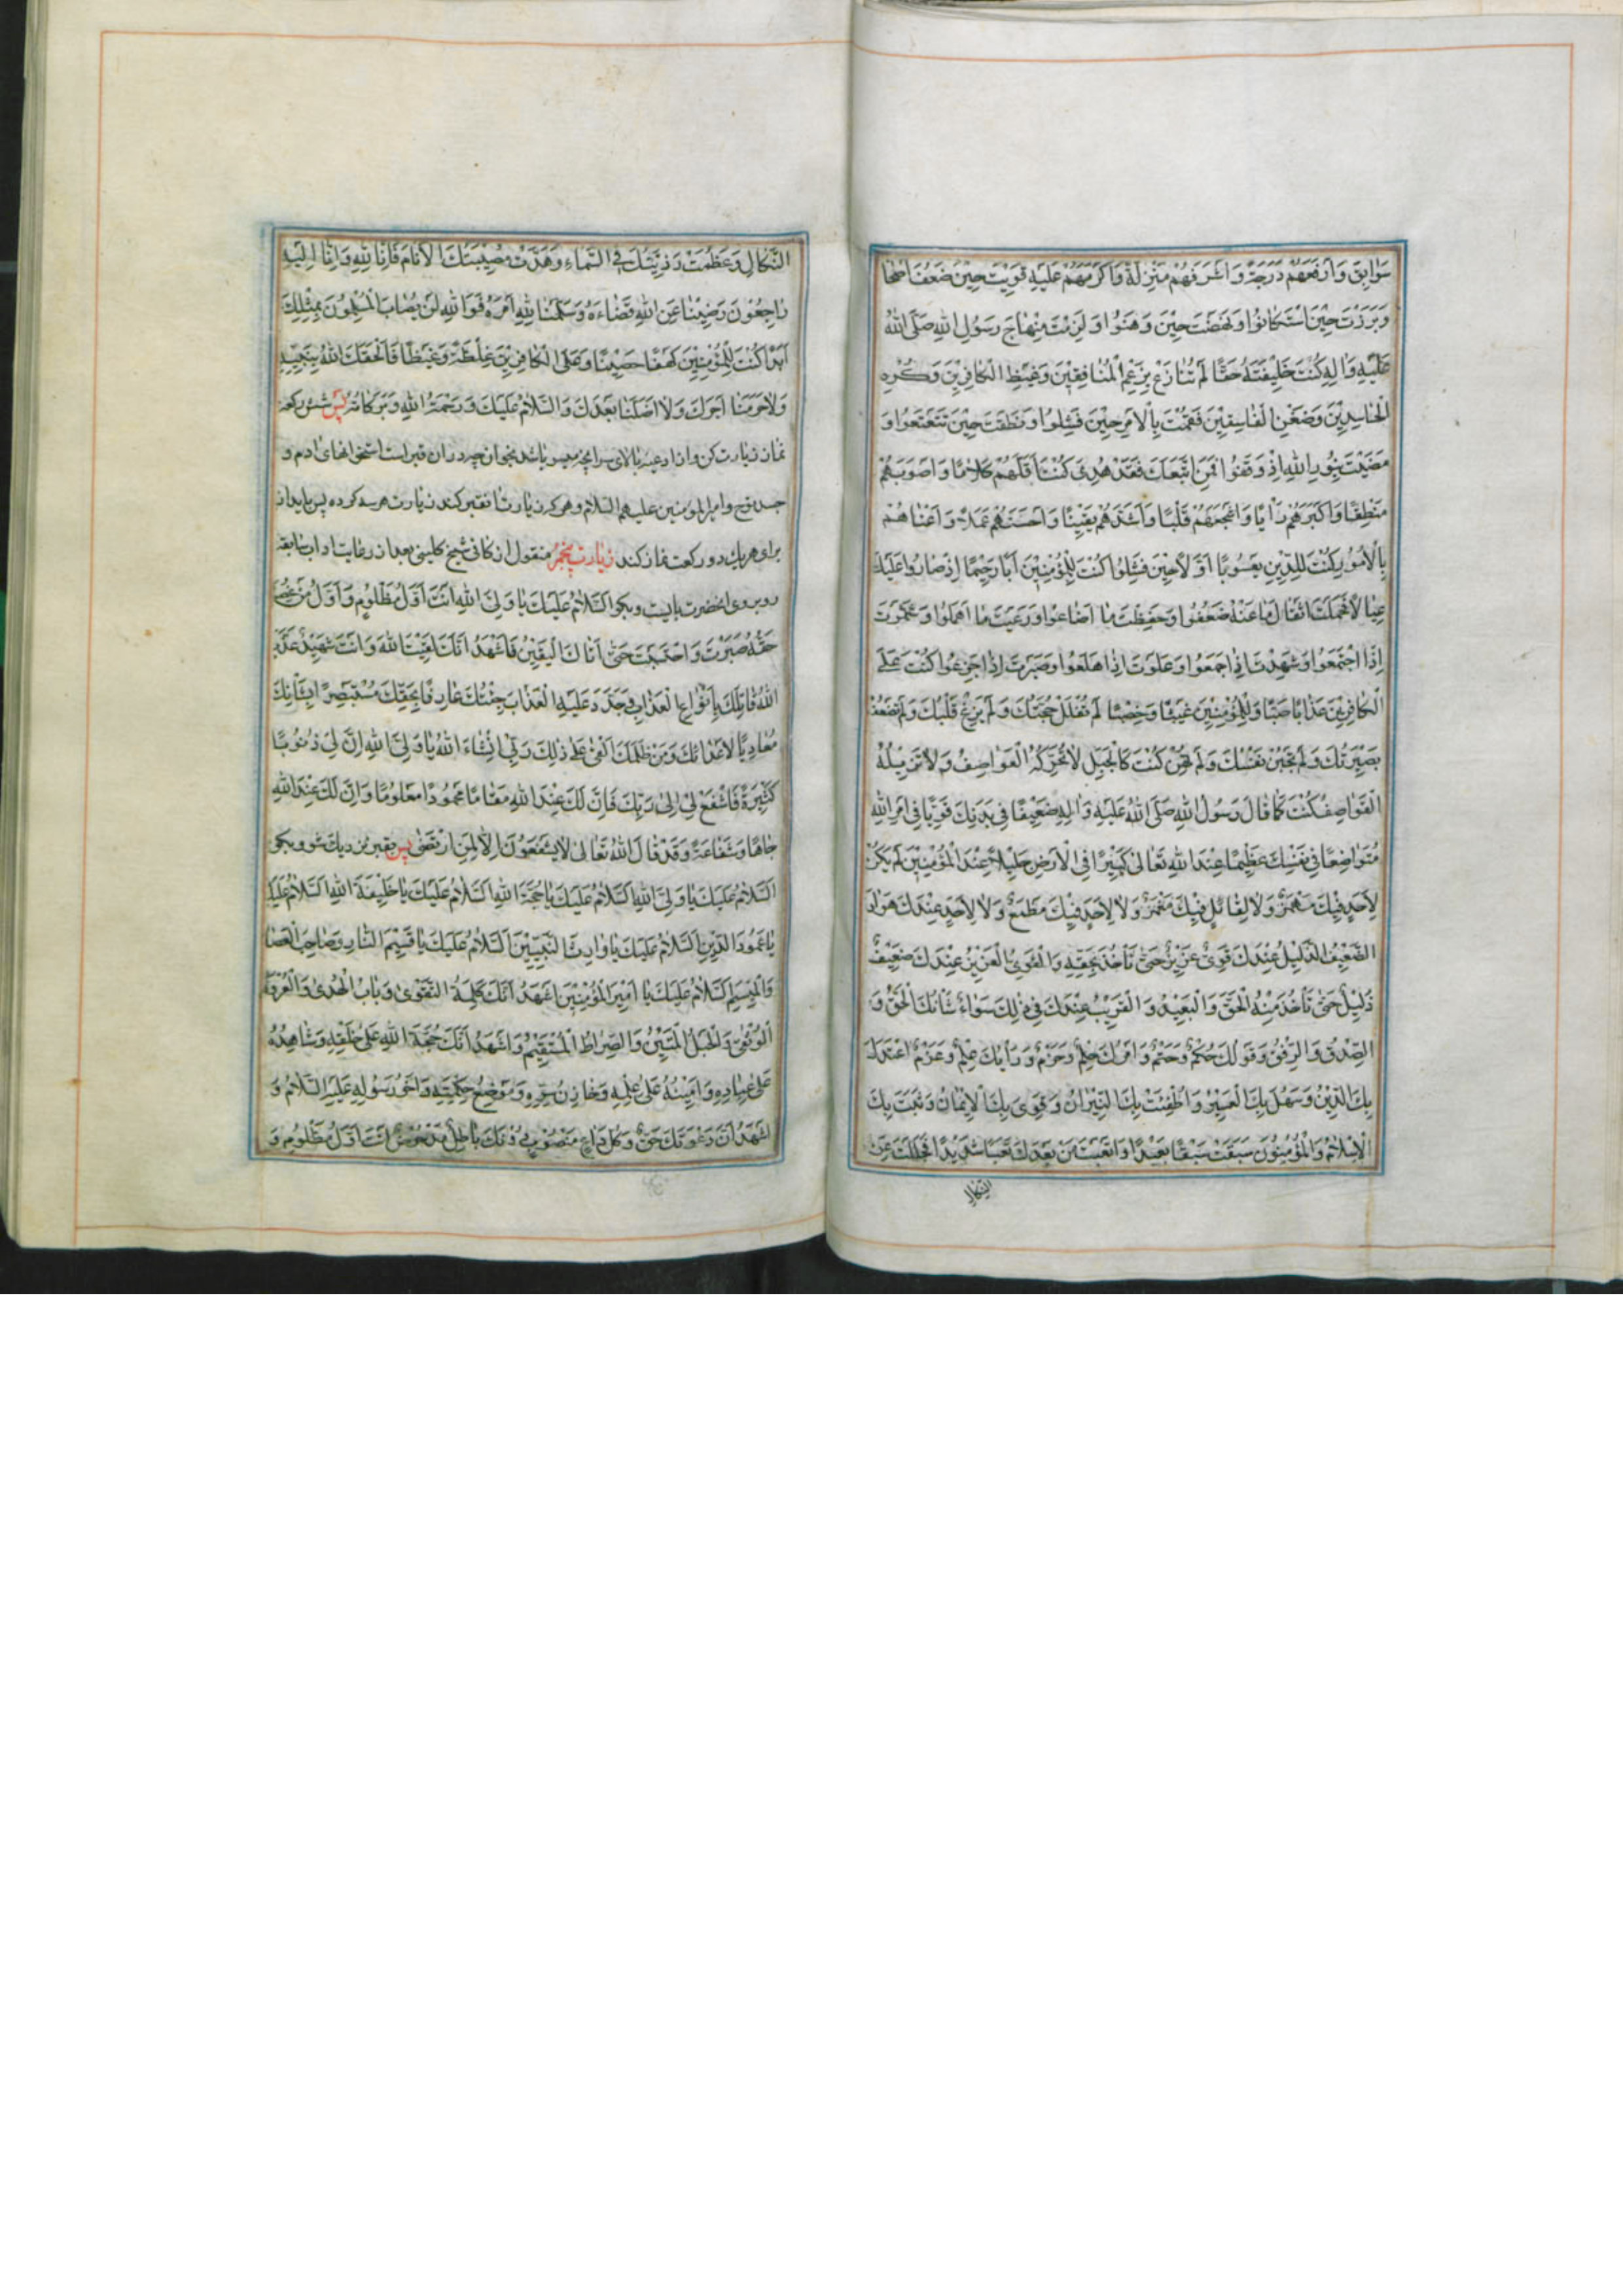 سَوَابِقَ وَاَرْفَعَهُمْ دَرَجَةً وَاَشْرَفَهُمْ مَنْزِلَةً وَاَكْرَمَهُمْ عَلَيْهِ قَوِيْتَ حِيْنَ ضَعُفَ اَصْحَا
وَبَرَزْتَ حِيْنَ اسْتَكَانُوا وَنَهَضْتَ حِيْنَ وَهَنُوا وَلَزِمْتَ مِنْهَاجَ رَسُولِ اللهِ صَلَّى اللهُ
عَلَيْهِ وَاٰلِهِ كُنْتَ خَلِيْفَتَهُ حَقًّا لَمْ تُنَازَعْ بِزَعْمِ الْمُنَافِقِيْنَ وَغَيْظِ الْكَافِرِيْنَ وَكُرْهِ
الْحَاسِدِيْنَ وَضِغْنِ الْفَاسِقِيْنَ فَقُمْتَ بِالْاَمْرِ حِيْنَ فَشِلُوا وَنَطَقْتَ حِيْنَ تَتَعْتَعُوا وَ
مَضَيْتَ بِنُورِ اللهِ اِذْ وَقَفُوا فَمَنِ اتَّبَعَكَ فَقَدْ هُدِىَ كُنْتَ اَقَلَّهُمْ كَلَامًا وَاَصْوَبَهُمْ
مَنْطِقًا وَاَكْبَرَهُمْ رَأْيًا وَاَشْجَعَهُمْ قَلْبًا وَاَشَدَّهُمْ يَقِيْنًا وَاَحْسَنَهُمْ عَمَلًا وَاَعْنَاهُمْ
بِالْاُمُوْرِ كُنْتَ لِلدِّيْنِ يَعْسُوبًا اَوَّلًا حِيْنَ فَشِلُوا كُنْتَ لِلْمُؤْمِنِيْنَ اَبًا رَحِيْمًا اِذْ صَارُوا عَلَيْكَ
عِيَالًا فَحَمَلْتَ اَثْقَالَ مَا عَنْهُ ضَعُفُوا وَحَفِظْتَ مَا اَضَاعُوا وَرَعَيْتَ مَا اَهْمَلُوا وَشَمَّرْتَ
اِذَا اجْتَمَعُوا وَشَهِدْتَ اِذَا جَمَعُوا وَعَلَوْتَ اِذَا هَلَعُوا وَصَبَرْتَ اِذَا جَزِعُوا كُنْتَ عَلَى
الْكَافِرِيْنَ عَذَابًا صَبًّا وَلِلْمُؤْمِنِيْنَ غَيْثًا وَخِصْبًا لَمْ تُفْلَلْ حُجَّتُكَ وَلَمْ يَزِغْ قَلْبُكَ وَلَمْ تَضْعُفْ
بَصِيْرَتُكَ وَلَمْ تَجْبُنْ نَفْسُكَ وَلَمْ تَهُنْ كُنْتَ كَالْجَبَلِ لَا تُحَرِّكُهُ الْعَوَاصِفُ وَلَا تُزِيْلُهُ
الْقَوَاصِفُ كُنْتَ كَمَا قَالَ رَسُولُ اللهِ صَلَّى اللهُ عَلَيْهِ وَاٰلِهِ ضَعِيْفًا فِى بَدَنِكَ قَوِيًّا فِى اَمْرِ اللهِ
مُتَوَاضِعًا فِى نَفْسِكَ عَظِيْمًا عِنْدَ اللهِ تَعَالَى كَبِيْرًا فِى الْاَرْضِ جَلِيْلًا عِنْدَ الْمُؤْمِنِيْنَ لَمْ يَكُنْ
لِاَحَدٍ فِيْكَ مَهْمَزٌ وَلَا لِقَائِلٍ فِيْكَ مَغْمَزٌ وَلَا لِاَحَدٍ فِيْكَ مَطْمَعٌ وَلَا لِاَحَدٍ عِنْدَكَ هَوَادَ
الضَّعِيْفُ الذَّلِيْلُ عِنْدَكَ قَوِىٌّ عَزِيْزٌ حَتّٰى تَأْخُذَ بِحَقِّهِ وَالْقَوِىُّ الْعَزِيْزُ عِنْدَكَ ضَعِيْفٌ
ذَلِيْلٌ حَتّٰى تَأْخُذَ مِنْهُ الْحَقَّ وَالْبَعِيْدُ وَالْقَرِيْبُ عِنْدَكَ فِى ذٰلِكَ سَوَاءٌ شَأْنُكَ الْحَقُّ وَ
الصِّدْقُ وَالرِّفْقُ وَقَوْلُكَ حُكْمٌ وَحَتْمٌ وَاَمْرُكَ حِلْمٌ وَحَزْمٌ وَرَأْيُكَ عِلْمٌ وَعَزْمٌ اعْتَدَلَ
بِكَ الدِّيْنُ وَسَهُلَ بِكَ الْعَسِيْرُ وَاُطْفِئَتْ بِكَ النِّيْرَانُ وَقَوِىَ بِكَ الْاِيْمَانُ وَثَبَتَ بِكَ
الْاِسْلَامُ وَالْمُؤْمِنُونَ سَبَقْتَ سَبْقًا بَعِيْدًا وَاَتْعَبْتَ مَنْ بَعْدَكَ تَعَبًا شَدِيْدًا فَجَلَلْتَ عَنِ
النكال
النَّكَالِ وَعَظُمَتْ رَزِيَّتُكَ فِى السَّمَاءِ وَهَدَّتْ مُصِيْبَتُكَ الْاَنَامَ فَاِنَّا لِلّٰهِ وَاِنَّا اِلَيْهِ
رَاجِعُوْنَ رَضِيْنَا عَنِ اللهِ قَضَاءَهُ وَسَلَّمْنَا لِلّٰهِ اَمْرَهُ فَوَاللهِ لَنْ يُصَابَ الْمُسْلِمُونَ بِمِثْلِكَ
اَبَدًا كُنْتَ لِلْمُؤْمِنِيْنَ كَهْفًا حَصِيْنًا وَعَلَى الْكَافِرِيْنَ غِلْظَةً وَغَيْظًا فَاَلْحَقَكَ اللهُ بِنَبِيِّهِ
وَلَا حَرَمَنَا اَجْرَكَ وَلَا اَضَلَّنَا بَعْدَكَ وَالسَّلَامُ عَلَيْكَ وَرَحْمَةُ اللهِ وَبَرَكَاتُهُ پس شش ركعة
نماز زيارت كن واز ادعيه بالاى سر انچه ميسر باشد بخوان چه در ان قبر است استخوانهاى ادم و
جسد نوح وامير المؤمنين عليهم السلام وهر كه زيارت انقبر كند زيارت هر سه كرده پس بايد از
براى هر يك دو ركعت نماز كند زيارت پنجم منقول از كافى شيخ كلينى بعد از رعايت اداب سابقه
روبروى انحضرت بايست وبكو اَلسَّلَامُ عَلَيْكَ يَا وَلِىَّ اللهِ اَنْتَ اَوَّلُ مَظْلُومٍ وَاَوَّلُ مَنْ غُصِبَ
حَقُّهُ صَبَرْتَ وَاحْتَسَبْتَ حَتّٰى اَتَاكَ الْيَقِيْنُ فَاَشْهَدُ اَنَّكَ لَقِيْتَ اللهَ وَاَنْتَ شَهِيْدٌ عَذَّبَ
اللهُ قَاتِلَكَ بِاَنْوَاعِ الْعَذَابِ وَجَدَّدَ عَلَيْهِ الْعَذَابَ جِئْتُكَ عَارِفًا بِحَقِّكَ مُسْتَبْصِرًا بِشَأْنِكَ
مُعَادِيًا لِاَعْدَائِكَ وَمَنْ ظَلَمَكَ اَلْقَى عَلَى ذٰلِكَ رَبِّى اِنْ شَاءَ اللهُ يَا وَلِىَّ اللهِ اِنَّ لِى ذُنُوبًا
كَثِيْرَةً فَاشْفَعْ لِى اِلَى رَبِّكَ فَاِنَّ لَكَ عِنْدَ اللهِ مَقَامًا مَحْمُودًا مَعْلُومًا وَاِنَّ لَكَ عِنْدَ اللهِ
جَاهًا وَشَفَاعَةً وَقَدْ قَالَ اللهُ تَعَالَى لَا يَشْفَعُونَ اِلَّا لِمَنِ ارْتَضَى پس بقبر نزديك شو وبكو
اَلسَّلَامُ عَلَيْكَ يَا وَلِىَّ اللهِ اَلسَّلَامُ عَلَيْكَ يَا حُجَّةَ اللهِ اَلسَّلَامُ عَلَيْكَ يَا خَلِيْفَةَ اللهِ اَلسَّلَامُ عَلَيْكَ
يَا عَمُودَ الدِّيْنِ اَلسَّلَامُ عَلَيْكَ يَا وَارِثَ النَّبِيِّيْنَ اَلسَّلَامُ عَلَيْكَ يَا قَسِيْمَ النَّارِ وَصَاحِبَ الْعَصَا
وَالْمِيْسَمِ اَلسَّلَامُ عَلَيْكَ يَا اَمِيْرَ الْمُؤْمِنِيْنَ اَشْهَدُ اَنَّكَ كَلِمَةُ التَّقْوٰى وَبَابُ الْهُدٰى وَالْعُرْوَةُ
الْوُثْقٰى وَالْحَبْلُ الْمَتِيْنُ وَالصِّرَاطُ الْمُسْتَقِيْمُ وَاَشْهَدُ اَنَّكَ حُجَّةُ اللهِ عَلَى خَلْقِهِ وَشَاهِدُهُ
عَلَى عِبَادِهِ وَاَمِيْنُهُ عَلَى عِلْمِهِ وَخَازِنُ سِرِّهِ وَمَوْضِعُ حِكْمَتِهِ وَاَخُو رَسُولِهِ عَلَيْهِ السَّلَامُ وَ
اَشْهَدُ اَنَّ دَعْوَتَكَ حَقٌّ وَكُلُّ دَاعٍ مَنْصُوبٍ دُونَكَ بَاطِلٌ مَدْحُوضٌ اَنْتَ اَوَّلُ مَظْلُومٍ وَ